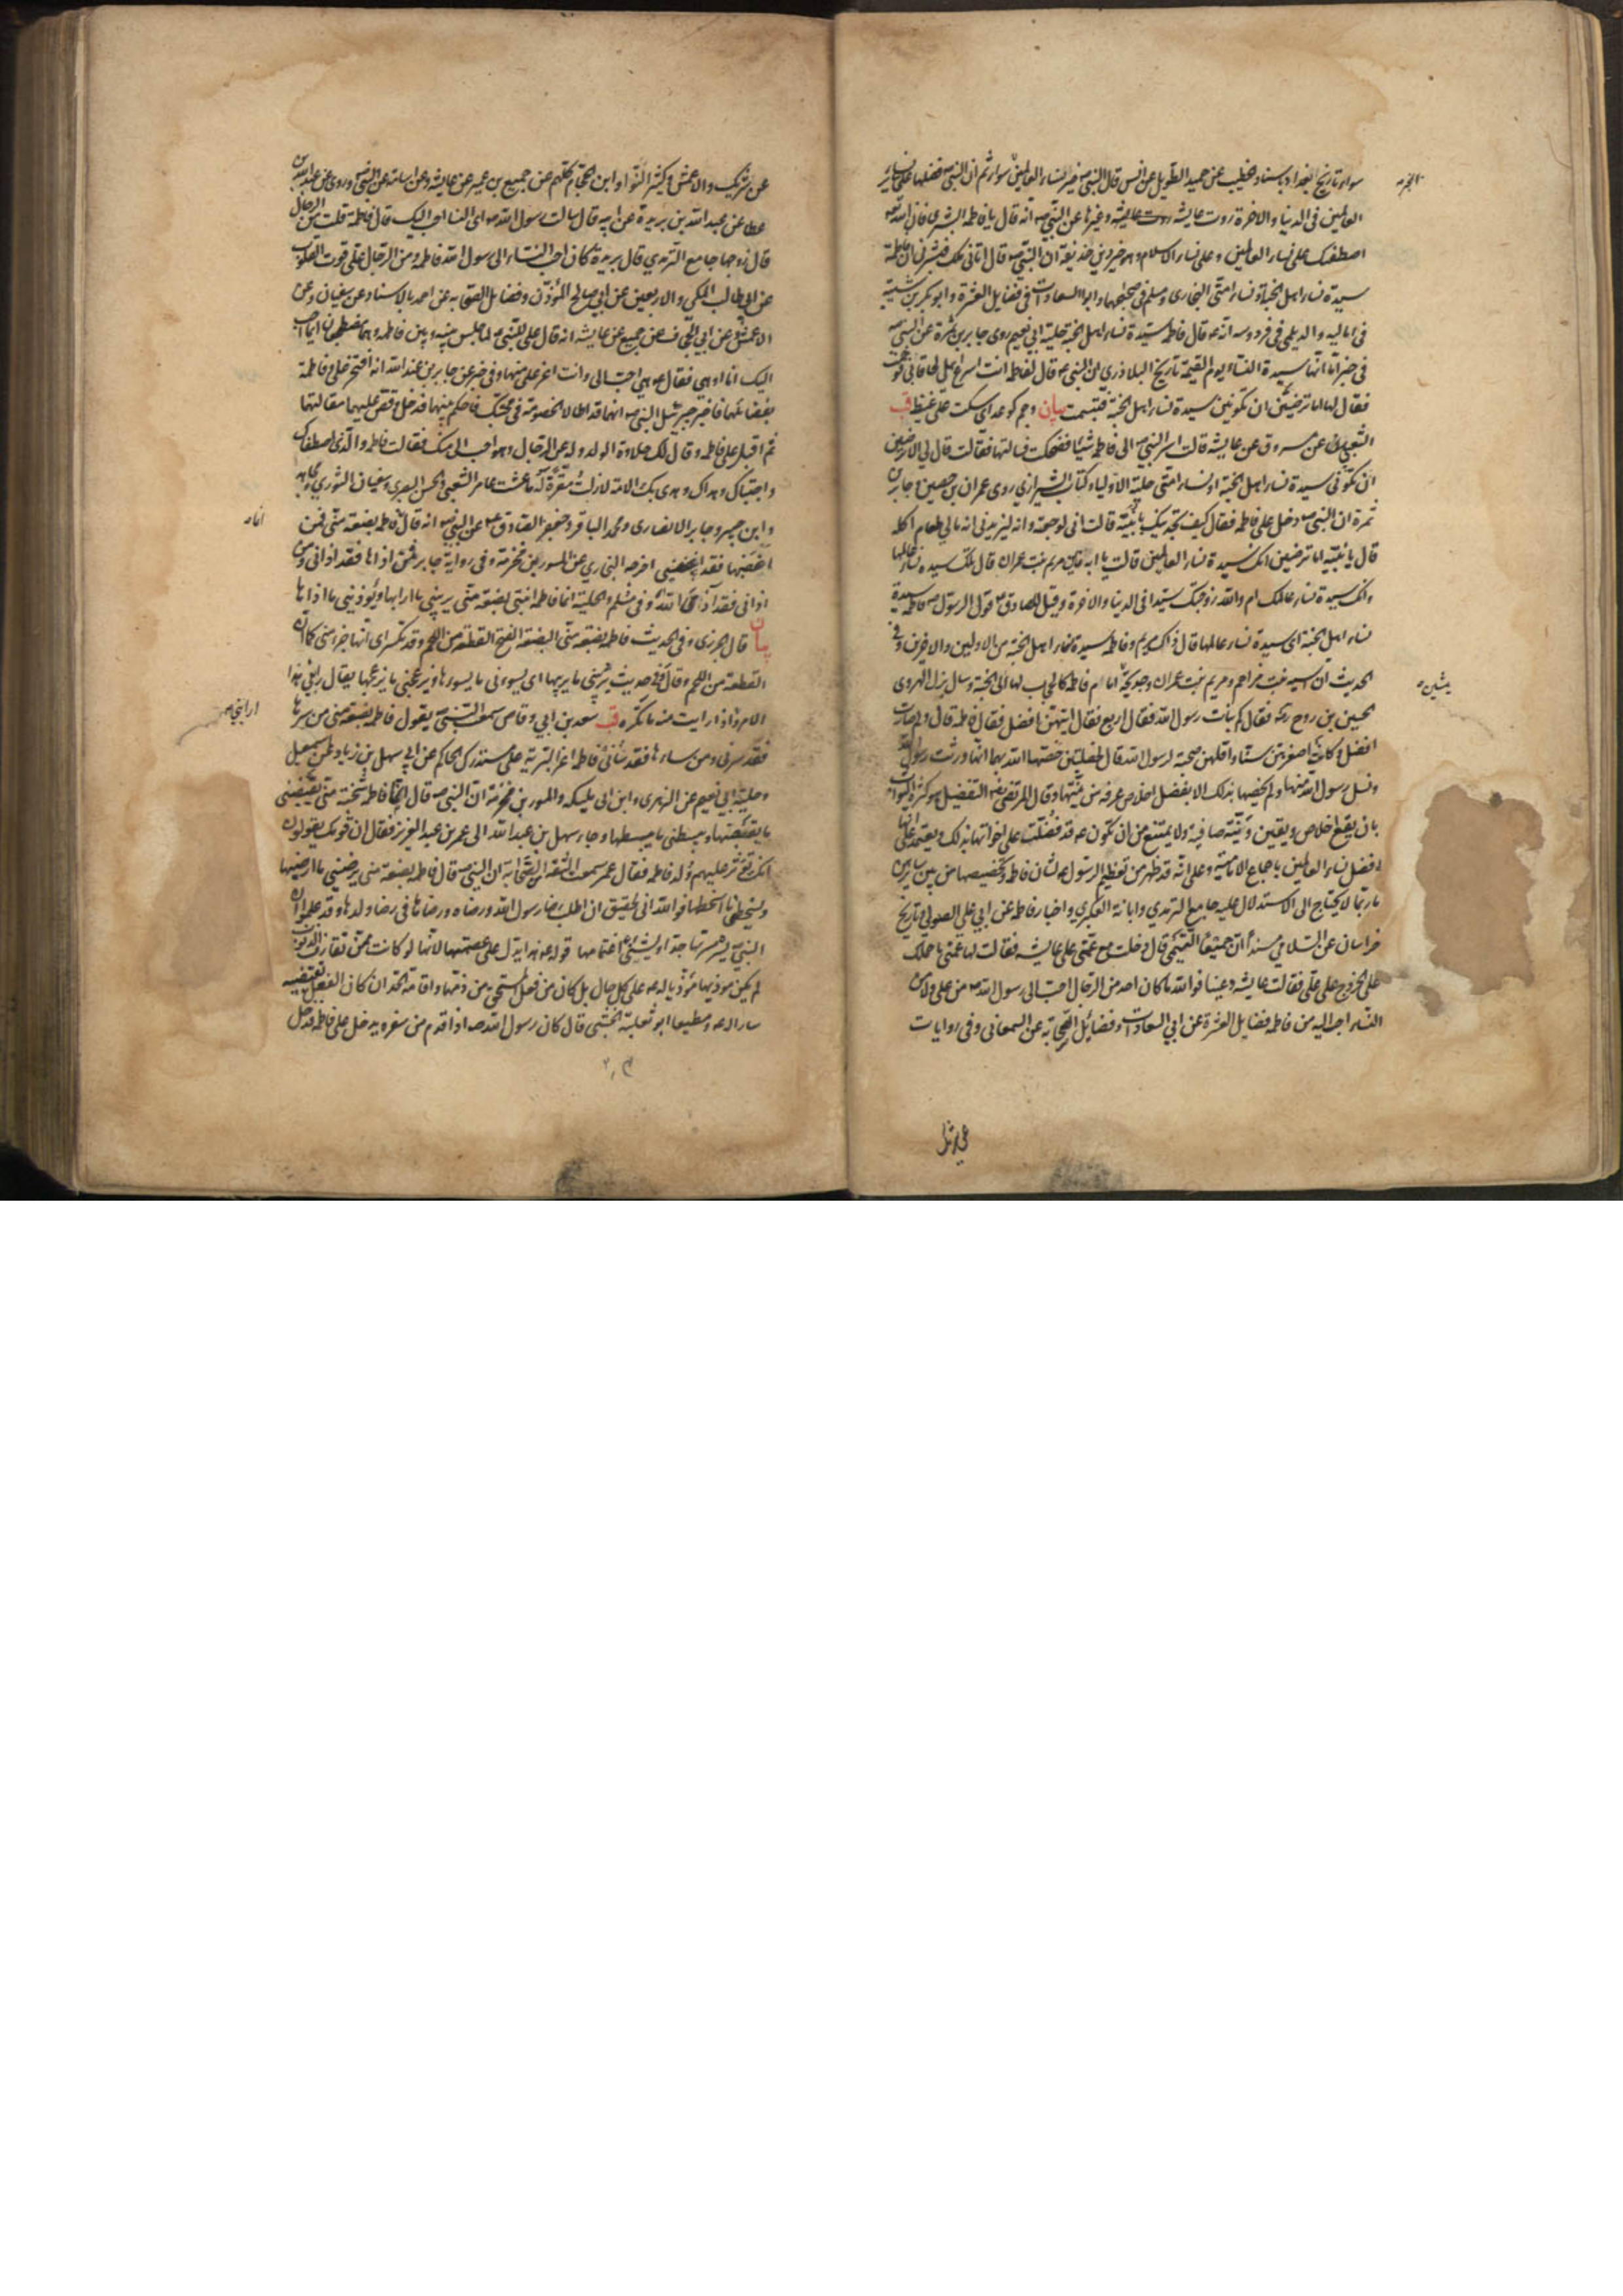 سواء تاريخ بغداد باسناد الخطيب عن حميد الطويل عن انس قال النبي ص خير نساء العالمين سواء ثم ان النبي ص فضلها على ساير
العالمين في الدنيا والاخرة روت عايشه وغيرها عن النبي ص انه قال يا فاطمه ابشري فان الله تع
اصطفك على نساء العالمين وعلى نساء الاسلام وهو خير دين حذيفة ان النبي ص قال اتاني ملك فبشرني ان فاطمة
سيدة نساء اهل الجنة او نساء امتي البخاري ومسلم في صحيحهما وابو السعادات في فضايل العشرة وابو بكر بن شيبة
في اماليه والديلمي في فردوسه انه ص قال فاطمه سيدة نساء اهل الجنة حلية ابي نعيم روى جابر بن سمرة عن النبي ص
في خبر اما انها سيدة النساء يوم القيمة تاريخ البلاذري ان النبي ص قال لفاطمه انت اسرع اهلي لحاقا بي فوجمت
فقال لها اما ترضين ان تكونين سيدة نساء اهل الجنة فتبسمت بيان وجم كوعد اي سكت على غيظ قب
الشعبي عن مسروق عن عايشه قالت اسر النبي ص الى فاطمه شيئا فضحكت فسالتها فقالت قال لي الا ترضين
ان تكوني سيدة نساء اهل الجنة او نساء امتي حلية الاولياء وكتاب الشيرازي روى عمران بن حصين وجابر بن
سمرة ان النبي ص دخل على فاطمه فقال كيف تجدينك يا بنية قالت اني لوجعة وانه ليزيدني انه مالي طعام اكله
قال يا بنية اما ترضين انك سيدة نساء العالمين قالت يا ابه فاين مريم بنت عمران قال تلك سيده نساء عالمها
وانك سيدة نساء عالمك ام والله زوجتك سيدا في الدنيا والاخرة وقيل للصادق ع قول الرسول ص فاطمه سيدة
نساء اهل الجنة اي سيدة نساء عالمها قال ذاك مريم وفاطمه سيدة نساء اهل الجنة من الاولين والاخرين وفي
الحديث ان اسيه بنت مزاحم ومريم بنت عمران وخديجة امام فاطمه كالحجاب لها الى الجنة وسال بزل الهروي
الحسين بن روح ره فقال كم بنات رسول الله فقال اربع فقال ايتهن افضل فقال فاطمه قال ولم صارت
افضل وكانت اصغرهن سنا واقلهن صحبة لرسول الله قال لخصلتين خصها الله بهما انها ورثت رسول الله
ونسل رسول الله منها ولم يخصها بذلك الا بفضل اخلاص عرفه من نيتها وقال المرتضى ره التفضيل هو كثرة الثواب
بان يقع اخلاص ويقين ونية صافية ولا يمتنع من ان تكون ع قد فضلت على اخواتها بذلك ويعتمد على انها
افضل نساء العالمين باجماع الامامية وعلى انه قد ظهر من تعظيم الرسول ص لشان فاطمه وتخصيصها من بين سايرهن
ما ربما لا يحتاج الى الاستدلال عليه جامع الترمذي وابانة العكبري واخبار فاطمه عن ابي علي الصولي وتاريخ
خراسان عن السلامي مسندا ان جميعا التيمي قال دخلت مع عمتي على عايشه فقالت لها عمتي ما حملك
على الخروج على علي فقالت عايشه دعينا فوالله ما كان احد من الرجال احب الى رسول الله ص من علي ولا من
النساء احب اليه من فاطمه فضايل العشرة عن ابي السعادات وفضائل الصحابة عن السمعاني وفي روايات
عن شريك والاعمش وكثير النوا وابن الحجام كلهم عن جميع بن عمير عن عايشه وعن اسامة عن النبي ص وروى عن عبد الله بن
عطا عن عبد الله بن بريدة عن ابيه قال سالت رسول الله ص اي النساء احب اليك قال فاطمة قلت من الرجال
قال زوجها جامع الترمذي قال بريدة كان احب النساء الى رسول الله فاطمه ومن الرجال علي قوت القلوب
عن ابي طالب المكي والاربعين عن ابي صالح المؤذن وفضايل الصحابه عن احمد بالاسناد عن سفيان وعن
الاعمش عن ابي الجحاف عن جميع عن عايشه انه قال علي للنبي ص لما جلس بينه وبين فاطمه وهما مضطجعان اينا احب
اليك انا او هي فقال ص هي احب الي وانت اعز علي منها وفي خبر عن جابر بن عبد الله انه افتخر علي وفاطمة
بفضائلهما فاخبر جبرئيل النبي ص انهما قد اطالا الخصومة في محبتك فاحكم بينهما فدخل وقص عليهما مقالتهما
ثم اقبل على فاطمه وقال لك حلاوة الولد وله عز الرجال وهو احب الي منك فقالت فاطمه والذي اصطفاك
واجتباك وهداك وهدى بك الامة لا زلت مقرة له ما عشت عامر الشعبي والحسن البصري وسفيان الثوري ومجاهد
وابن جبير وجابر الانصاري ومحمد الباقر وجعفر الصادق ع عن النبي ص انه قال فاطمه بضعة مني فمن
اغضبها فقد اغضبني اخرجه البخاري عن المسور بن مخرمة وفي رواية جابر فمن اذاها فقد اذاني ومن
اذاني فقد اذى الله وفي مسلم والحلية انما فاطمه ابنتي بضعة مني يريبني ما ارابها ويؤذيني ما اذاها
بيان قال الجزري وفي الحديث فاطمه بضعة مني البضعة بالفتح القطعة من اللحم وقد تكسر اي انها جزء مني كما ان
القطعة من اللحم وقال في حديث يريبني ما يريبها اي يسوءني ما يسوءها ويزعجني ما يزعجها يقال رابني هذا
الامر واذا رايت منه ما تكره قب سعد بن ابي وقاص سمعت النبي ص يقول فاطمه بضعة مني من سرها
فقد سرني ومن ساءها فقد ساءني فاطمه اعز البرية علي مستدرك الحاكم عن ابي سهل بن زياد عن اسمعيل
وحلية ابي نعيم عن الزهري وابن ابي مليكه والمسور بن مخرمة ان النبي ص قال انما فاطمه شجنة مني يقبضني
ما يقبضها ويبسطني ما يبسطها وجاء سهل بن عبد الله الى عمر بن عبد العزيز فقال ان قومك يقولون
انك تؤثر عليهم ولد فاطمه فقال عمر سمعت الثقة من الصحابة ان النبي ص قال فاطمه بضعة مني يرضيني ما ارضيها
ويسخطني ما اسخطها فوالله اني لحقيق ان اطلب رضا رسول الله ورضاه ورضاها في رضا ولدها وقد علموا ان
النبي يسره مسرتها جدا ويشنى اغتمامها قوله ع هذا يدل على عصمتها لانها لو كانت ممن تقارف الذنوب
لم يكن موذيها موذيا له ع على كل حال بل كان من فعل المستحق من ذمها واقامة الحد ان كان الفعل يقتضيه
سارا له ع ومطيعا ابو ثعلبة الخشني قال كان رسول الله ص اذا قدم من سفره يدخل على فاطمه فدخل